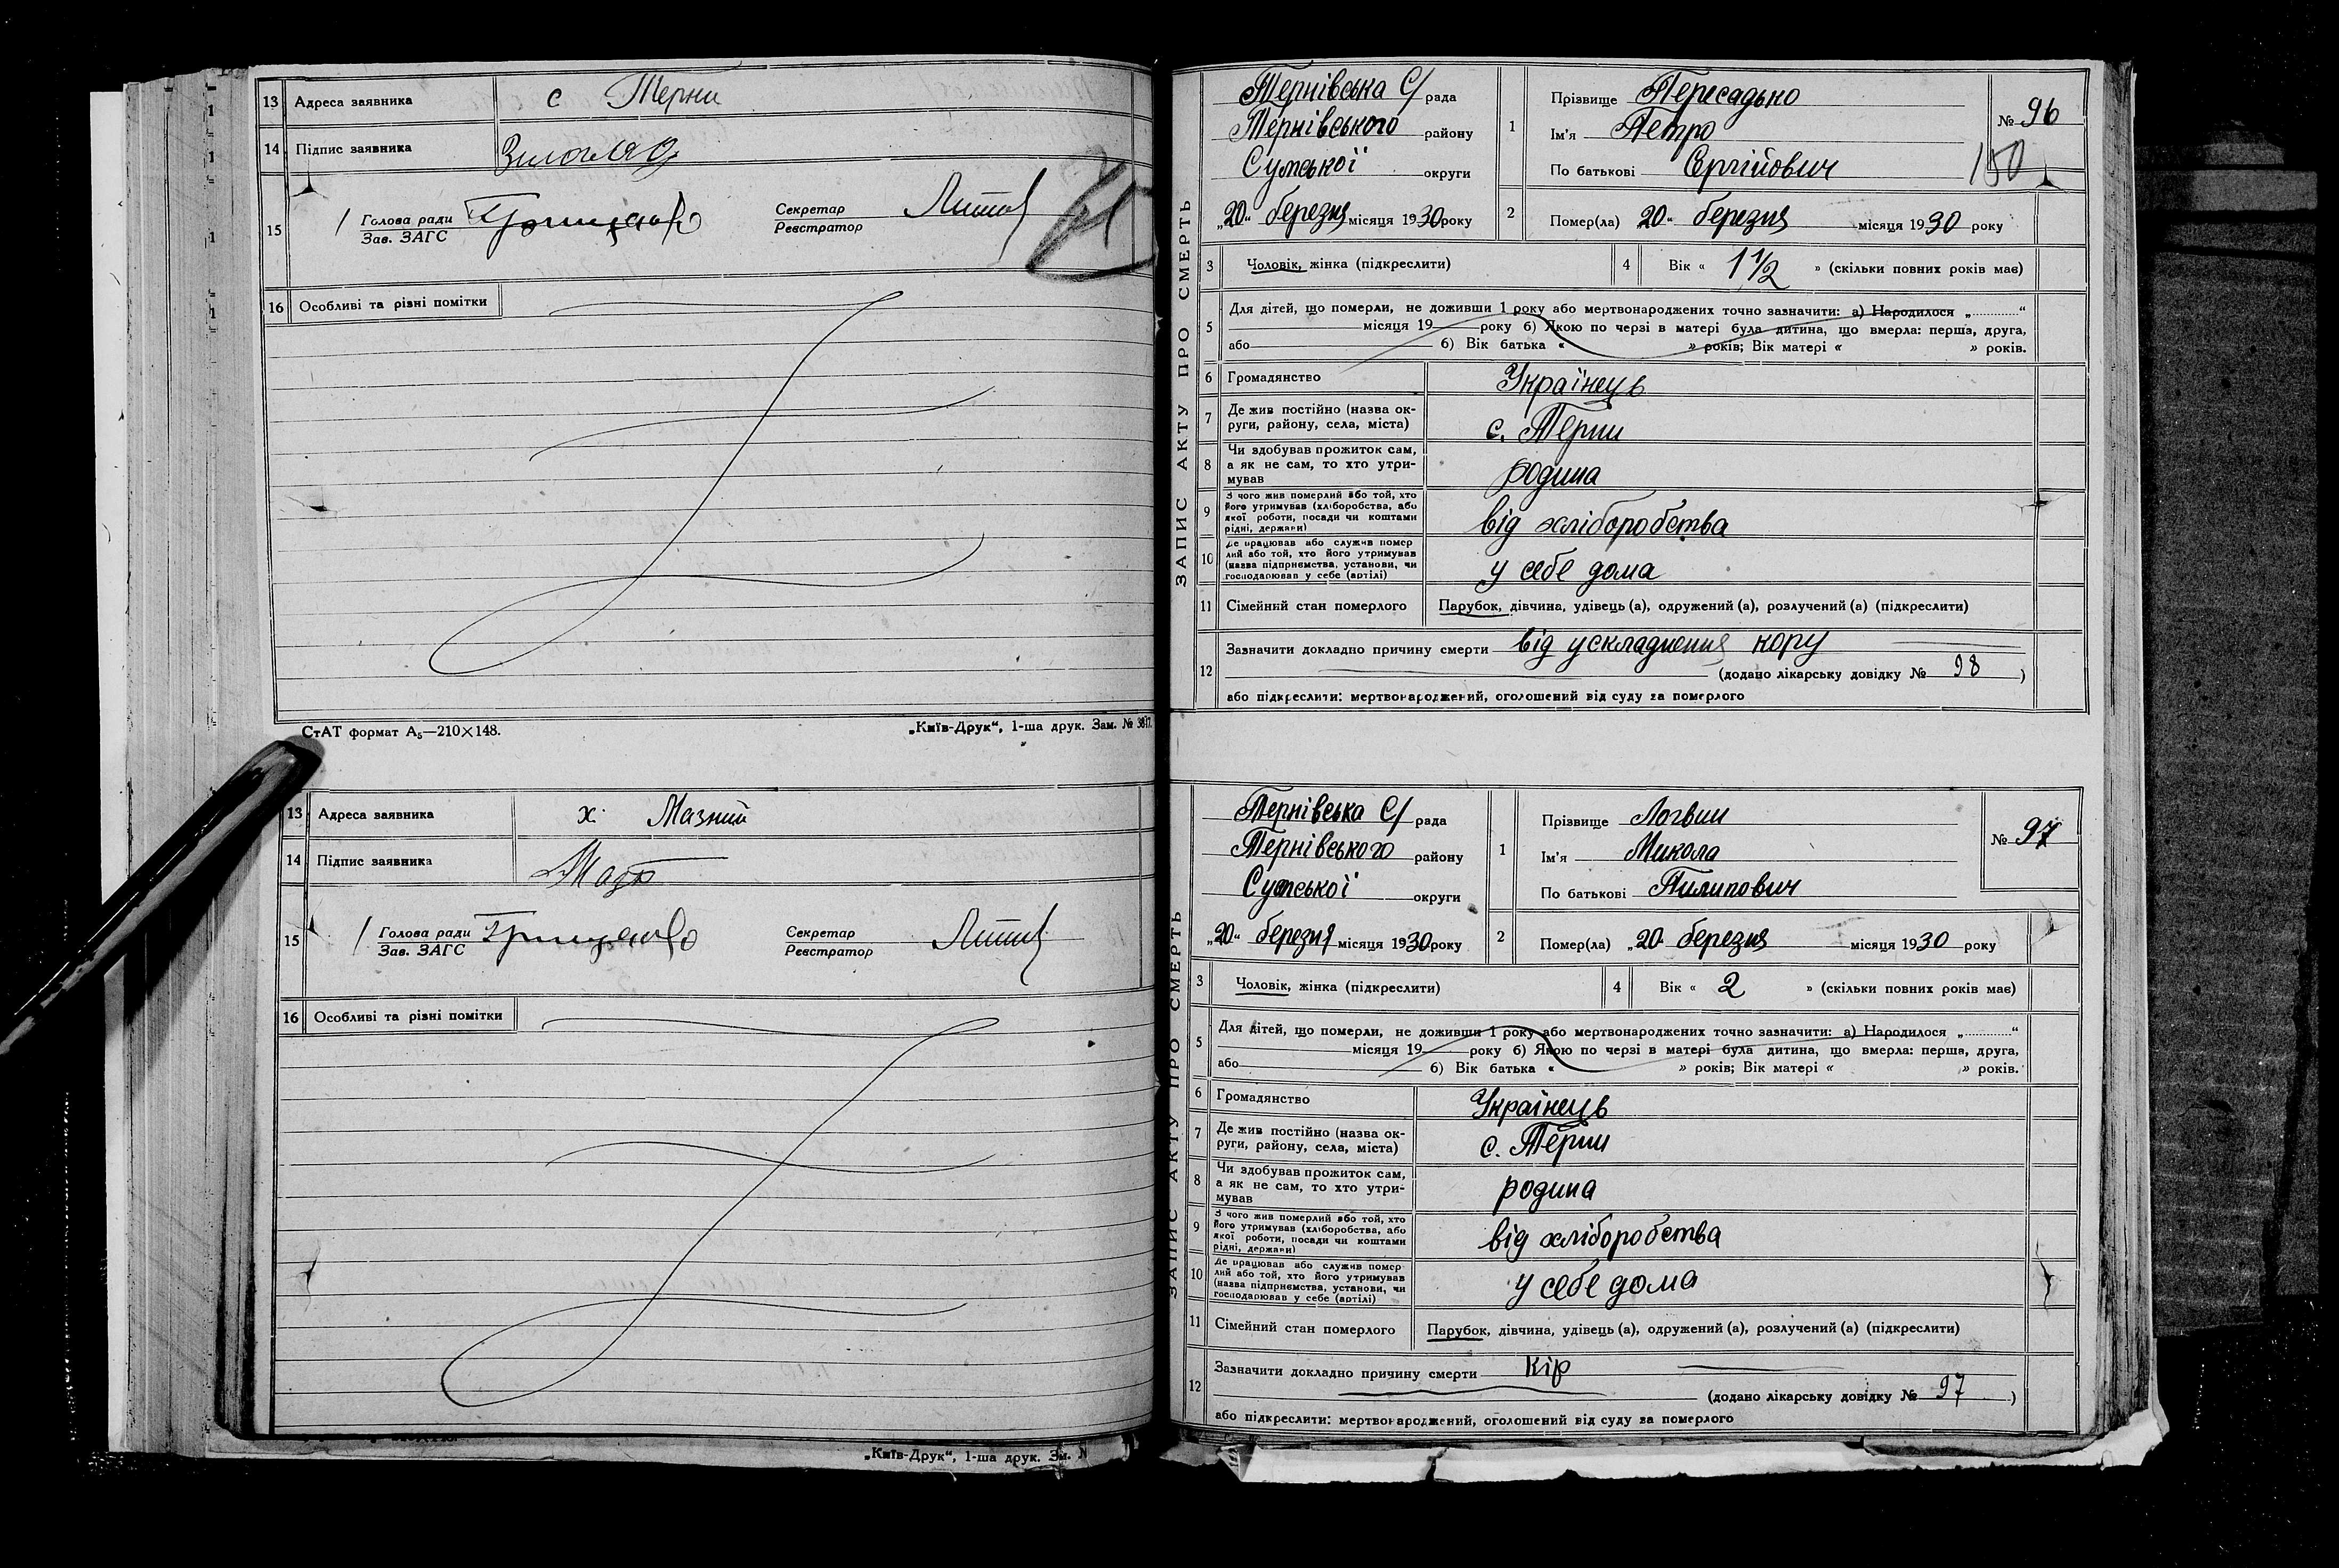 13 Адреса заявника с Терни
14 Підпис заявника
15 Голова ради Зав. ЗАГС Секретар Реєстратор
16 Особливі та різні помітки
СтАТ формат А₅—210×148. „Київ-Друк“, 1-ша друк. Зам. № 3817.
13 Адреса заявника х. Мазний
14 Підпис заявника
15 Голова ради Зав. ЗАГС Секретар Реєстратор
16 Особливі та різні помітки
„Київ-Друк“, 1-ша друк. Зам. №
ЗАПИС АКТУ ПРО СМЕРТЬ
Тернівська С/ рада
Тернівського району
Сумської округи
„20“ березня місяця 1930 року
1 Прізвище Пересадько
Ім'я Петро
По батькові Сергійович
№ 96
150
2 Помер(ла) „20“ березня місяця 1930 року
3 Чоловік, жінка (підкреслити) 4 Вік « 1 1/2 » (скільки повних років має)
5 Для дітей, що померли, не доживши 1 року або мертвонароджених точно зазначити: а) Народилося „............“
місяця 19 року б) Якою по черзі в матері була дитина, що вмерла: перша, друга,
або б) Вік батька « » років; Вік матері « » років.
6 Громадянство Українець
7 Де жив постійно (назва ок-
руги, району, села, міста) с. Терни
8 Чи здобував прожиток сам,
а як не сам, то хто утри-
мував родина
9 З чого жив померлий або той, хто
його утримував (хліборобства, або
якої роботи, посади чи коштами
рідні, держави) від хліборобства
10 Де працював або служив помер
лий або той, хто його утримував
(назва підприємства, установи, чи
господарював у себе (артілі) у себе дома
11 Сімейний стан померлого Парубок, дівчина, удівець (а), одружений (а), розлучений (а) (підкреслити)
12 Зазначити докладно причину смерти від ускладнення кору
(додано лікарську довідку № 98 )
або підкреслити: мертвонароджений, оголошений від суду за померлого
ЗАПИС АКТУ ПРО СМЕРТЬ
Тернівська С/ рада
Тернівського району
Сумської округи
„20“ березня місяця 1930 року
1 Прізвище Логвин
Ім'я Микола
По батькові Пилипович
№ 97
2 Помер(ла) „20“ березня місяця 1930 року
3 Чоловік, жінка (підкреслити) 4 Вік « 2 » (скільки повних років має)
5 Для дітей, що померли, не доживши 1 року або мертвонароджених точно зазначити: а) Народилося „............“
місяця 19 року б) Якою по черзі в матері була дитина, що вмерла: перша, друга,
або б) Вік батька « » років; Вік матері « » років.
6 Громадянство Українець
7 Де жив постійно (назва ок-
руги, району, села, міста) с. Терни
8 Чи здобував прожиток сам,
а як не сам, то хто утри-
мував родина
9 З чого жив померлий або той, хто
його утримував (хліборобства, або
якої роботи, посади чи коштами
рідні, держави) від хліборобства
10 Де працював або служив помер
лий або той, хто його утримував
(назва підприємства, установи, чи
господарював у себе (артілі) у себе дома
11 Сімейний стан померлого Парубок, дівчина, удівець (а), одружений (а), розлучений (а) (підкреслити)
12 Зазначити докладно причину смерти Кір
(додано лікарську довідку № 97 )
або підкреслити: мертвонароджений, оголошений від суду за померлого